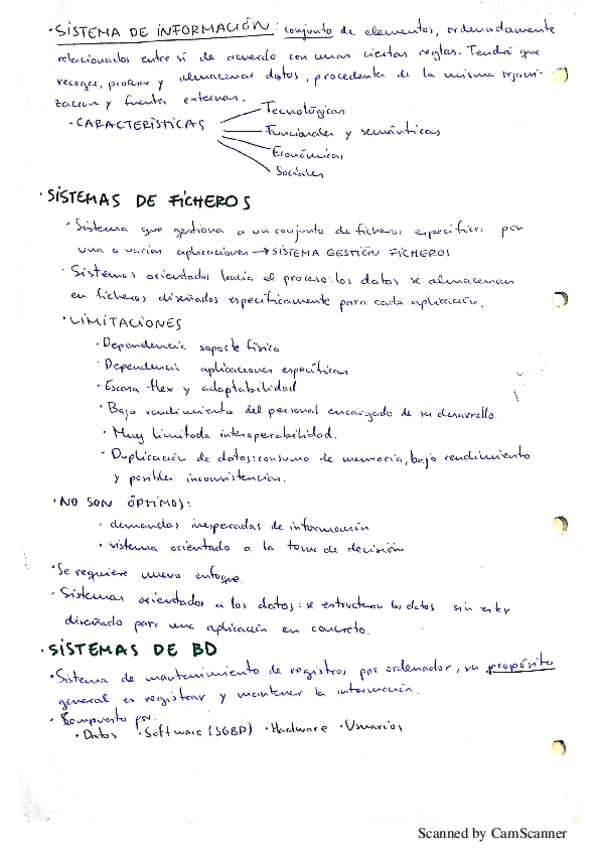 · SISTEMA DE INFORMACIÓN: conjunto de elementos, ordenadamente
relacionados entre sí de acuerdo con unas ciertas reglas. Tendrá que
recoger, procesar y almacenar datos, procedentes de la misma organi-
zación y fuentes externas.
· CARACTERÍSTICAS
Tecnológicas
Funcionales y semánticas
Económicas
Sociales
· SISTEMAS DE FICHEROS
· Sistema que gestiona a un conjunto de ficheros específicos por
una o varias aplicaciones → SISTEMA GESTIÓN FICHEROS
· Sistemas orientados hacia el proceso: los datos se almacenan
en ficheros diseñados específicamente para cada aplicación.
· LIMITACIONES
· Dependencia soporte físico
· Dependencia aplicaciones específicas
· Escasa flex y adaptabilidad
· Bajo rendimiento del personal encargado de su desarrollo.
· Muy limitada interoperabilidad.
· Duplicación de datos: consumo de memoria, bajo rendimiento
y posibles inconsistencias.
· NO SON ÓPTIMOS:
· demandas inesperadas de información
· sistema orientado a la toma de decisión
· Se requiere nuevo enfoque.
· Sistemas orientados a los datos: se estructuran los datos sin estar
diseñado para una aplicación en concreto.
· SISTEMAS DE BD
· Sistema de mantenimiento de registros por ordenador, su propósito
general es registrar y mantener la información.
· Compuesto por:
· Datos · Software (SGBD) · Hardware · Usuarios
Scanned by CamScanner